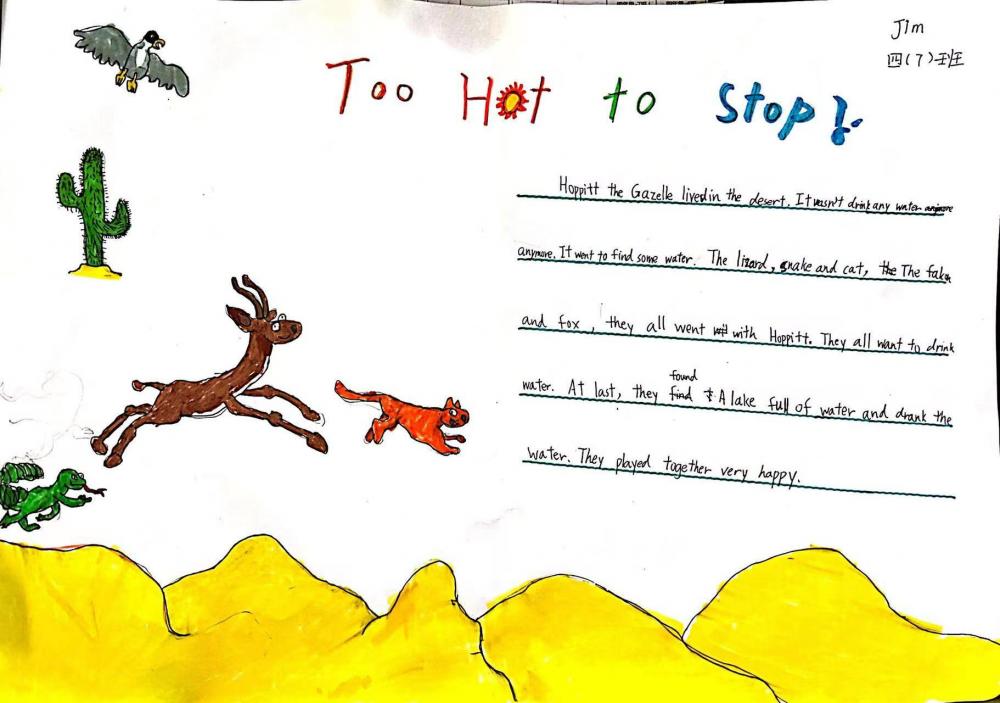 Jim
四(7)班
Too Hot to Stop!
Hoppitt the Gazelle lived in the desert. It wasn't drink any water
anymore. It went to find some water. The lizard, snake and cat, the The
and fox, they all went with Hoppitt. They all want to drink
water. At last, they found A lake full of water and drank the
water. They played together very happy.